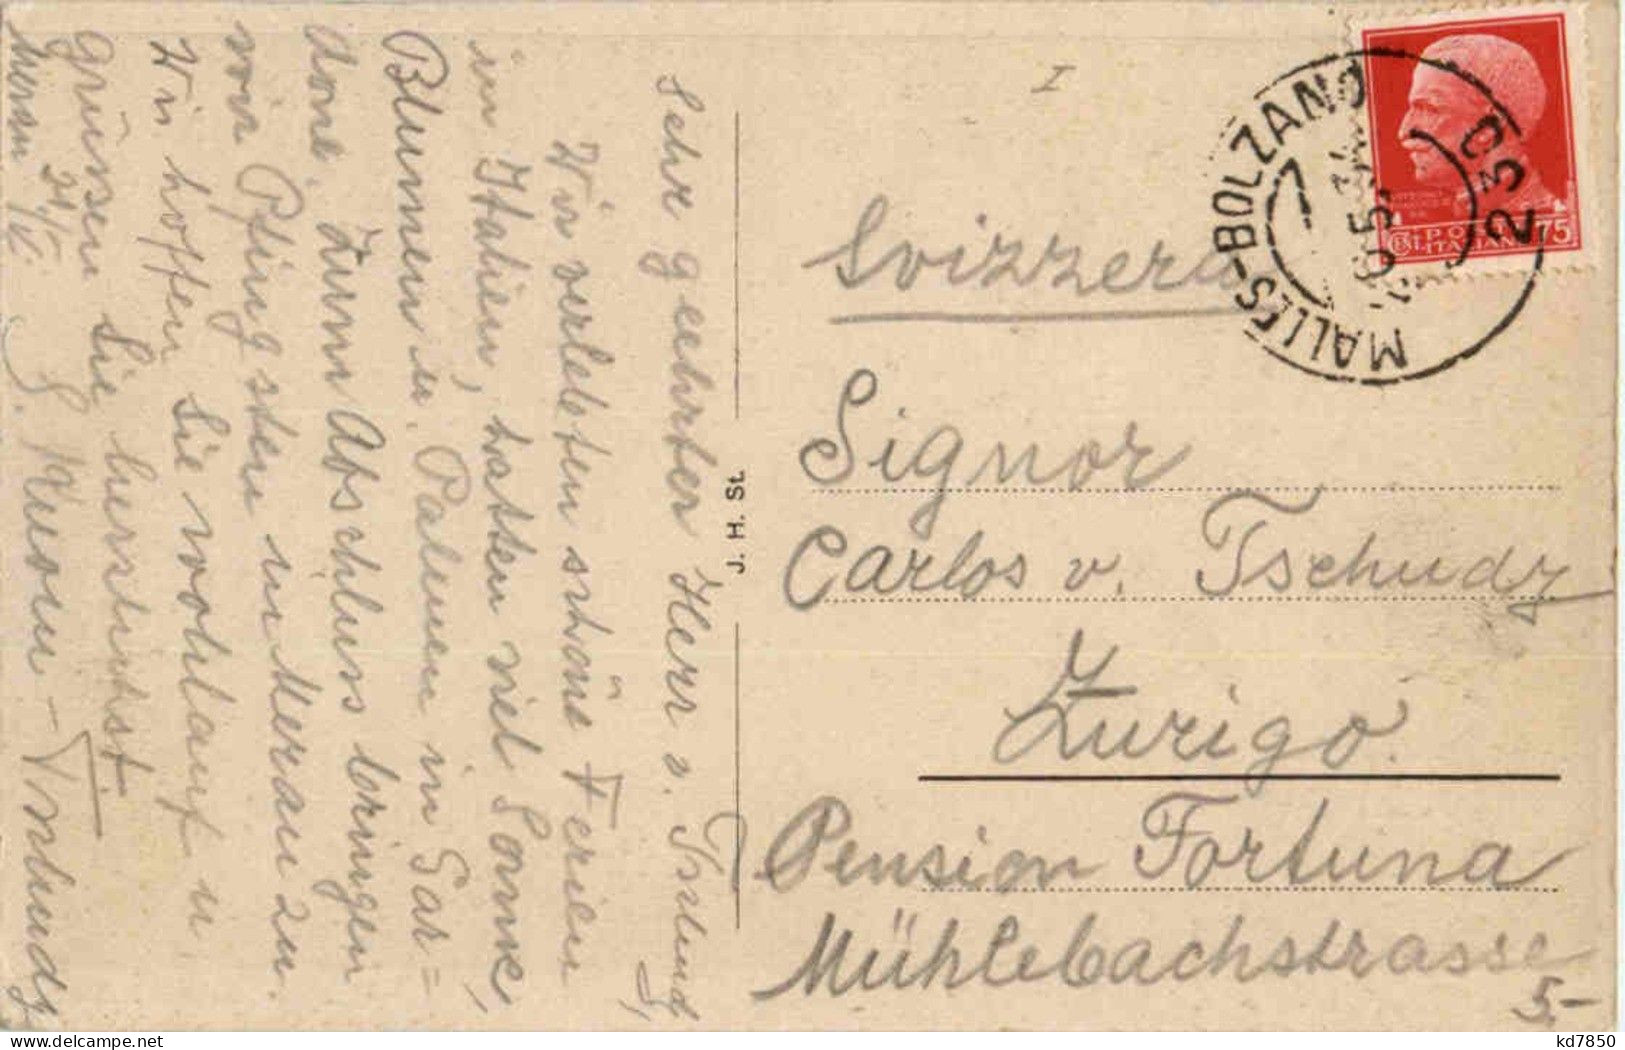 Sehr geehrter Herr v. Tschudy,
Wir verlebten schöne Ferien
in Italien, hatten viel Sonne,
Blumen u. Palmen in Gar=
done. Zum Abschluss bringen
wir Pfingsten in Meran zu.
Wir hoffen Sie wohlauf u.
grüssen Sie herzlichst.
Meran
Tschudy
J. H. St.
I
MALLES-BOLZANO
230
POSTE ITALIANE
75
Svizzera
Signor
Carlos v. Tschudy
Zurigo.
Pension Fortuna
Mühlebachstrasse
5.-
kd7850